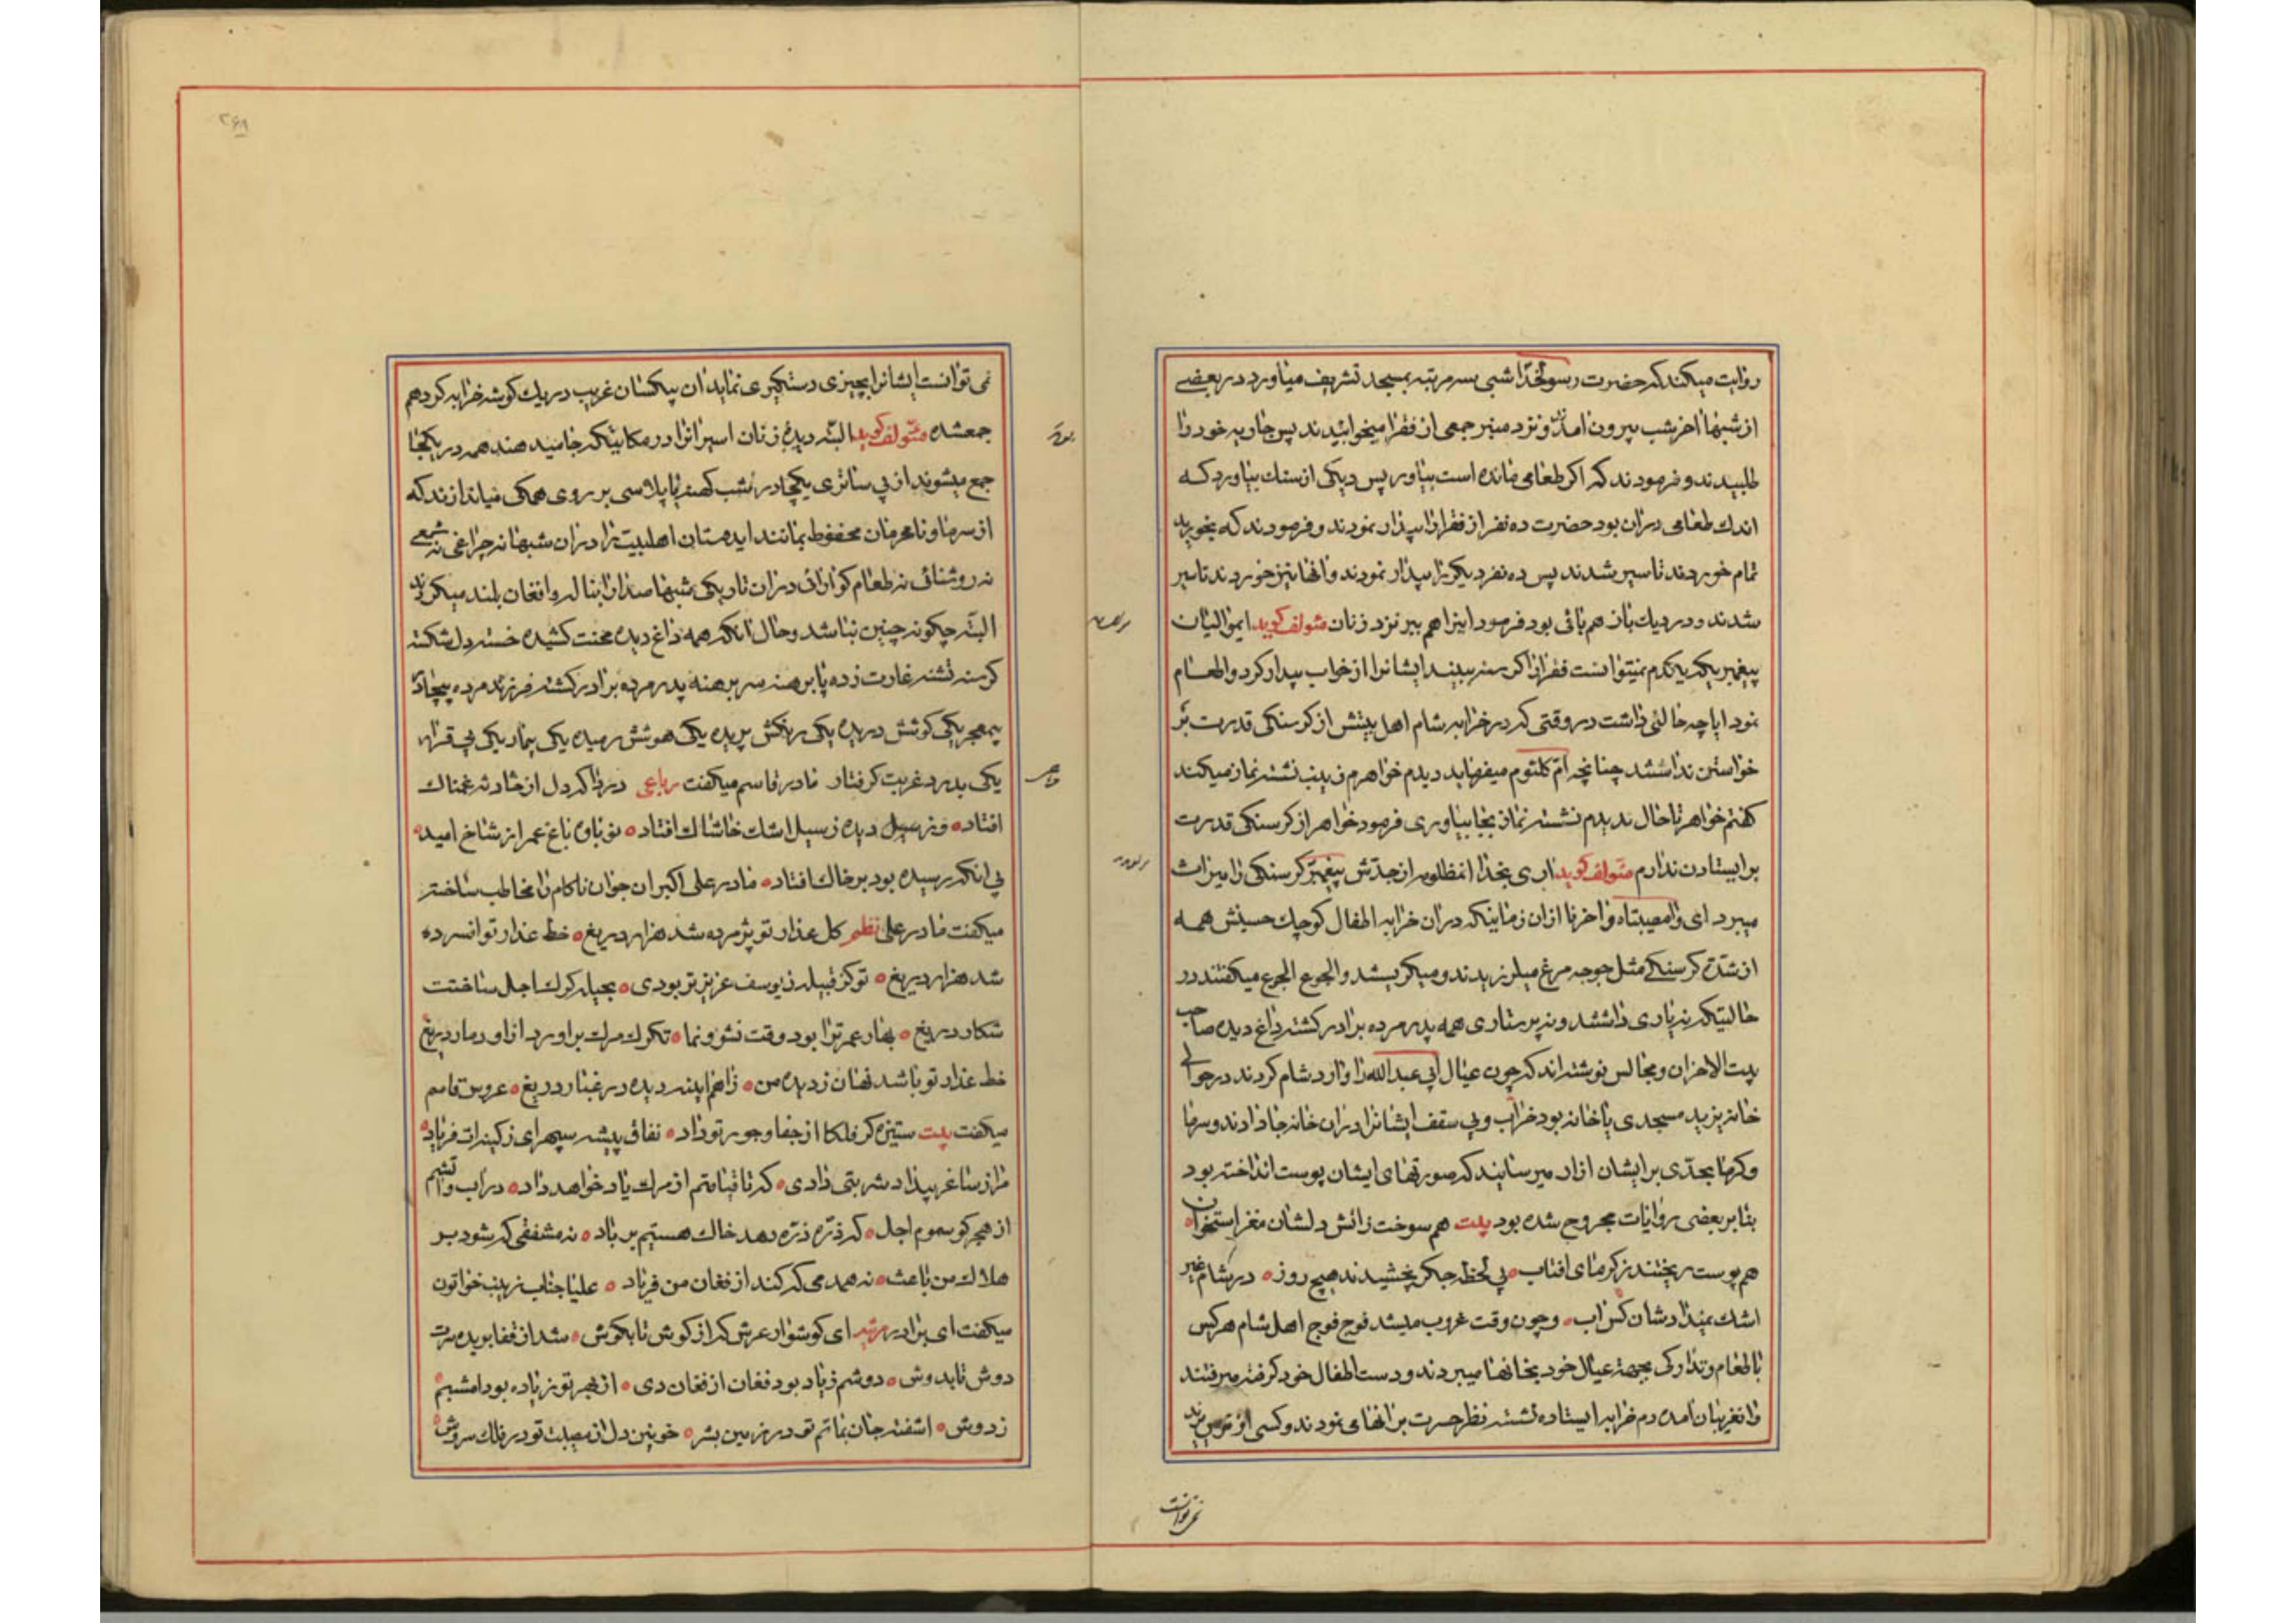 روایت میکند که حضرت رسولخدا شبی بسه مرتبه بمسجد تشریف میاورد در بعضے
از شبها اخر شب بیرون امدند و نزد منبر جمعی از فقرا میخوابیدند پس جاریه خود را
طلبیدند و فرمودند که اکر طعامی مانده است بیاور پس دیکی از سنك بیاورد که
اندك طعامی دران بود حضرت ده نفر از فقرا را بیدار نمودند و فرمودند که بخورید
تمام خوردند تا سیر شدند پس ده نفر دیکر را بیدار نمودند و انها نیز خوردند تا سیر
شدند و در دیك باز هم باقی بود فرمود اینرا هم ببر نزد زنان مئولف کوید ایموالیان
پیغمبریکه یکدم نمیتوانست فقرا را کرسنه ببیند ایشانرا از خواب بیدار کرد و اطعام
نمود ایا چه حالتی داشت در وقتی که در خرابه شام اهل بیتش از کرسنکی قدرت بر
خواستن نداشتند چنانچه ام کلثوم میفرماید دیدم خواهرم زینب نشسته نماز میکند
کفتم خواهر تا حال ندیدم نشسته نماز بجا بیاوری فرمود خواهر از کرسنکی قدرت
بر ایستادن ندارم مئولف کوید اری بخدا انمظلومه از جدش پیغمبر کرسنکی را میراث
میبرد ای وا مصیبتاه وا حزنا ازان زمانیکه دران خرابه اطفال کوچك حسینش همه
از شدت کرسنکے مثل جوجه مرغ میلرزیدند و میکریستند و الجوع الجوع میکفتند در
حالتیکه نه یاری داشتند و نه پرستاری همه پدر مرده برادر کشته داغ دیده صاحب
بیت الاحزان و مجالس نوشته اند که چون عیال ابی عبدالله را وارد شام کردند در حوالے
خانه یزید مسجدی یا خانه بود خراب و بی سقف ایشانرا دران خانه جا دادند و سرما
و کرما بحدی بر ایشان ازار میرسانید که صورتهای ایشان پوست انداخته بود
بنا بر بعضی روایات مجروح شده بود بیت هم سوخت ز اتش دلشان مغز استخوان
هم پوست ریختند ز کرمای افتاب بی لحظه جکر نخشیدند هیچ روز در شام غیر
اشك نمیدادشان کس اب و چون وقت غروب میشد فوج فوج اهل شام هر کس
با طعام و تدارکی بجهة عیال خود بخانها میبردند و دست اطفال خود کرفته میرفتند
و انغریبان امده دم خرابه ایستاده نشسته نظر حسرت بر انها می نمودند و کسی از ترس یزید
نمی توانست
نمی توانست ایشانرا بچیزی دستکیری نماید ان بیکسان غریب در یك کوشه خرابه کردهم
جمعشده مئولف کوید البته دیده زنان اسیرانرا در مکانیکه جا میدهند همه در یکجا
جمع میشوند از بی ساتری یکچادر شب کهنه یا پلاسی بر روی همکی میاندازند که
از سرما و نامحرمان محفوظ بمانند ایدوستان اهلبیت را دران شبها نه چراغی نه شمعے
نه روشنائی نه طعام کوارائی دران تاریکی شبها صدا را بناله و افغان بلند میکردند
البته چکونه چنین نباشد و حال انکه همه داغ دیده محنت کشیده خسته دل شکسته
کرسنه تشنه غارت زده پا برهنه سر برهنه پدر مرده برادر کشته فرزند مرده بیچادر
بیمعجر یکی کوشش دریده یکی رنکش پریده یکی هوشش رمیده یکی بیمار یکی بی قرار
یکی بدرد غربت کرفتار مادر قاسم میکفت رباعی دردا که دل از حادثه غمناك
افتاد وز سیل دیده ز سیل اشك خاشاك افتاد نوباوه باغ عمر از شاخ امید
بی انکه رسیده بود بر خاك افتاد مادر علی اکبر ان جوان ناکام را مخاطب ساخته
میکفت مادر علی نظم کل عذار تو پژمرده شد هزار دریغ خط عذار تو افسرده
شد هزار دریغ تو کز قبیله ز یوسف عزیزتر بودی بحیله کرك اجل ساختت
شکار دریغ بهار عمر ترا بود وقت نشو و نما تکرك مرك براورد ازاو دمار دریغ
خط عذار تو باشد نهان ز دیده من زاهم اینه دیده در غبار دریغ عروس قاسم
میکفت بیت ستیزه کر فلکا از جفا و جور تو داد نفاق پیشه سپهرا ز کینه ات فریاد
مرا ز ساغر بیداد شربتی دادی که تا قیامتم از مرك یاد خواهد داد در اب و اتشم
از هجر کو سموم اجل که ذره ذره دهد خاك هستیم بر باد نه مشفقی که شود بر
هلاك من باعث نه همدمی که کند از فغان من فریاد علیا جناب زینب خواتون
میکفت ای برادر مرثیه ای کوشوار عرش که از کوش تا بکوش شد از قفا بریده سرت
دوش تا بدوش دوشم زیاد بود فغان از فغان دی از هجر تو زیاده بود امشبم
ز دوش اشفته جان بماتم تو در زمین بشر خونین دل از مصیبت تو در فلك سروش